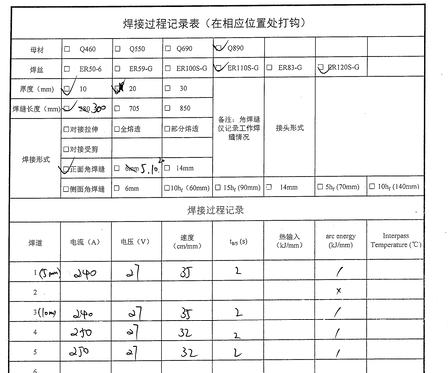 焊接过程记录表（在相应位置处打钩）
母材 □ Q460 □ Q550 □ Q690 □ Q890
焊丝 □ ER50-6 □ ER59-G □ ER100S-G □ ER110S-G □ ER83-G □ ER120S-G
厚度（mm） □ 10 □ 20 □ 30
焊缝长度（mm） □ 300 □ 705 □ 850
备注：角焊缝仅记录工作焊缝情况
接头形式
焊接形式
□ 对接拉伸 □ 全熔透 □ 部分熔透
□ 对接受剪
□ 正面角焊缝 □ 5.10 □ 14mm
□ 侧面角焊缝 □ 6mm □ 10hf (60mm) □ 15hf (90mm) □ 14mm □ 5hf (70mm) □ 10hf (140mm)
焊接过程记录
焊道 电流（A） 电压（V） 速度 (cm/mm) t8/5 (s) 热输入 (kJ/mm) arc energy (kJ/mm) Interpass Temperature (℃)
1 (5mm) 240 27 35 2 /
2 x
3 (10mm) 240 27 35 2 /
4 250 27 32 2 /
5 250 27 32 2 /
6